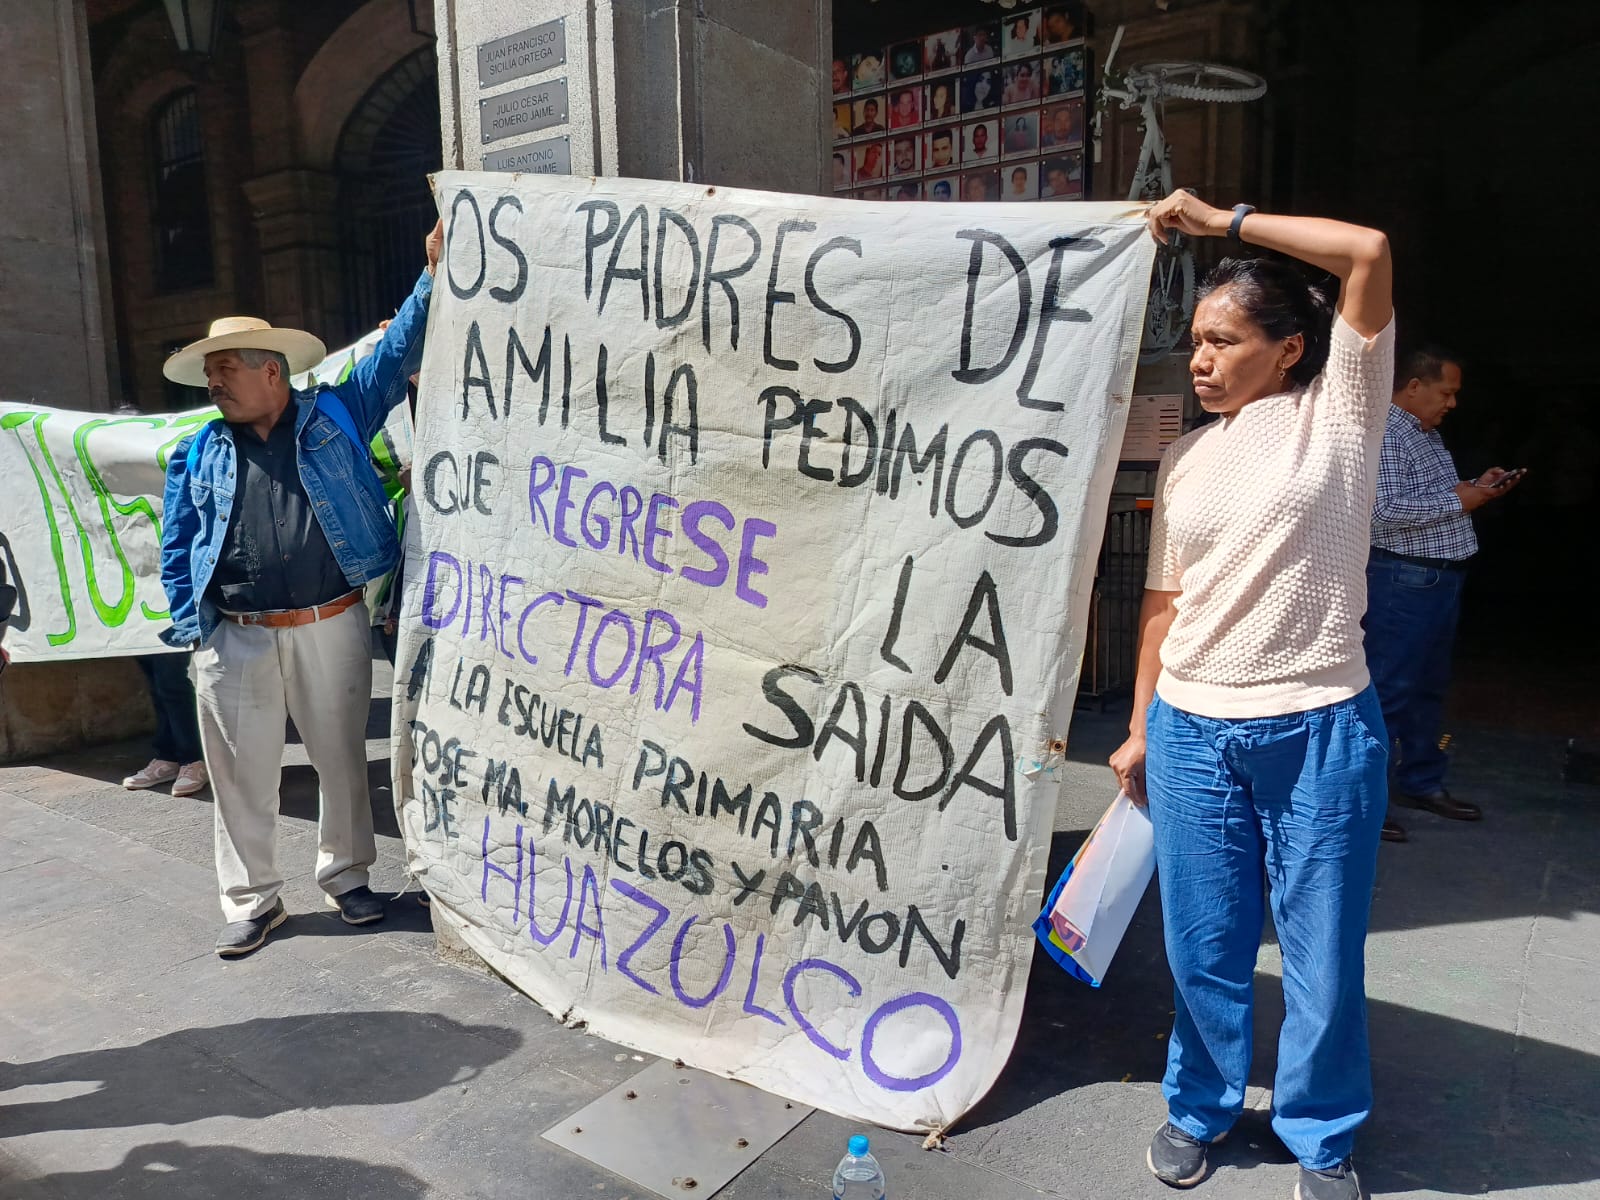 JUAN FRANCISCO
SICILIA ORTEGA
JULIO CÉSAR
ROMERO JAIME
LUIS ANTONIO
JAIME
OS PADRES DE
AMILIA PEDIMOS
QUE REGRESE LA
DIRECTORA SAIDA
A LA ESCUELA PRIMARIA
JOSE MA. MORELOS Y PAVON
DE HUAZULCO
JUS